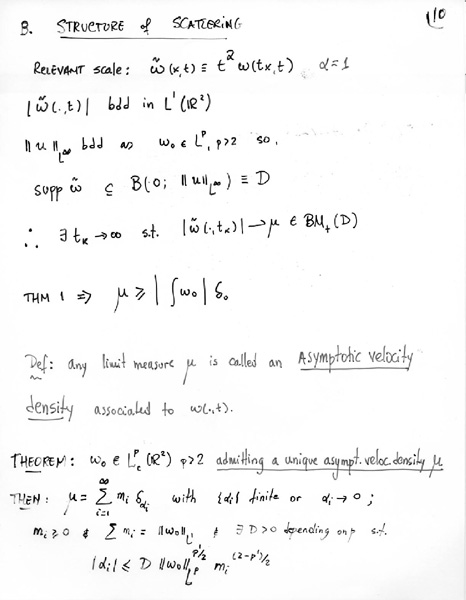 10
B. STRUCTURE of SCATTERING
RELEVANT SCALE: w̃(x,t) ≡ t² w(tx,t) α=1
|w̃(.,t)| bdd in L¹(ℝ²)
||u||_{L^∞} bdd as w₀ ∈ L^p, p>2 so,
supp w̃ ⊆ B(0; ||u||_{L^∞}) ≡ D
∴ ∃ t_k → ∞ s.t. |w̃(.,t_k)| ⇀ μ ∈ BM₊(D)
THM 1 ⇒ μ ≥ |∫w₀| δ₀
Def: any limit measure μ is called an Asymptotic velocity
density associated to w(.,t).
THEOREM: w₀ ∈ L^p_c(ℝ²) p>2 admitting a unique asympt. veloc. density μ
THEN: μ = ∑_{i=1}^{∞} m_i δ_{α_i} with {α_i} finite or α_i → 0 ;
m_i ≥ 0 & ∑ m_i = ||w₀||_{L¹} & ∃ D>0 depending on p s.t.
|α_i| ≤ D ||w₀||_{L^p}^{p'/2} m_i^{(2-p')/2}